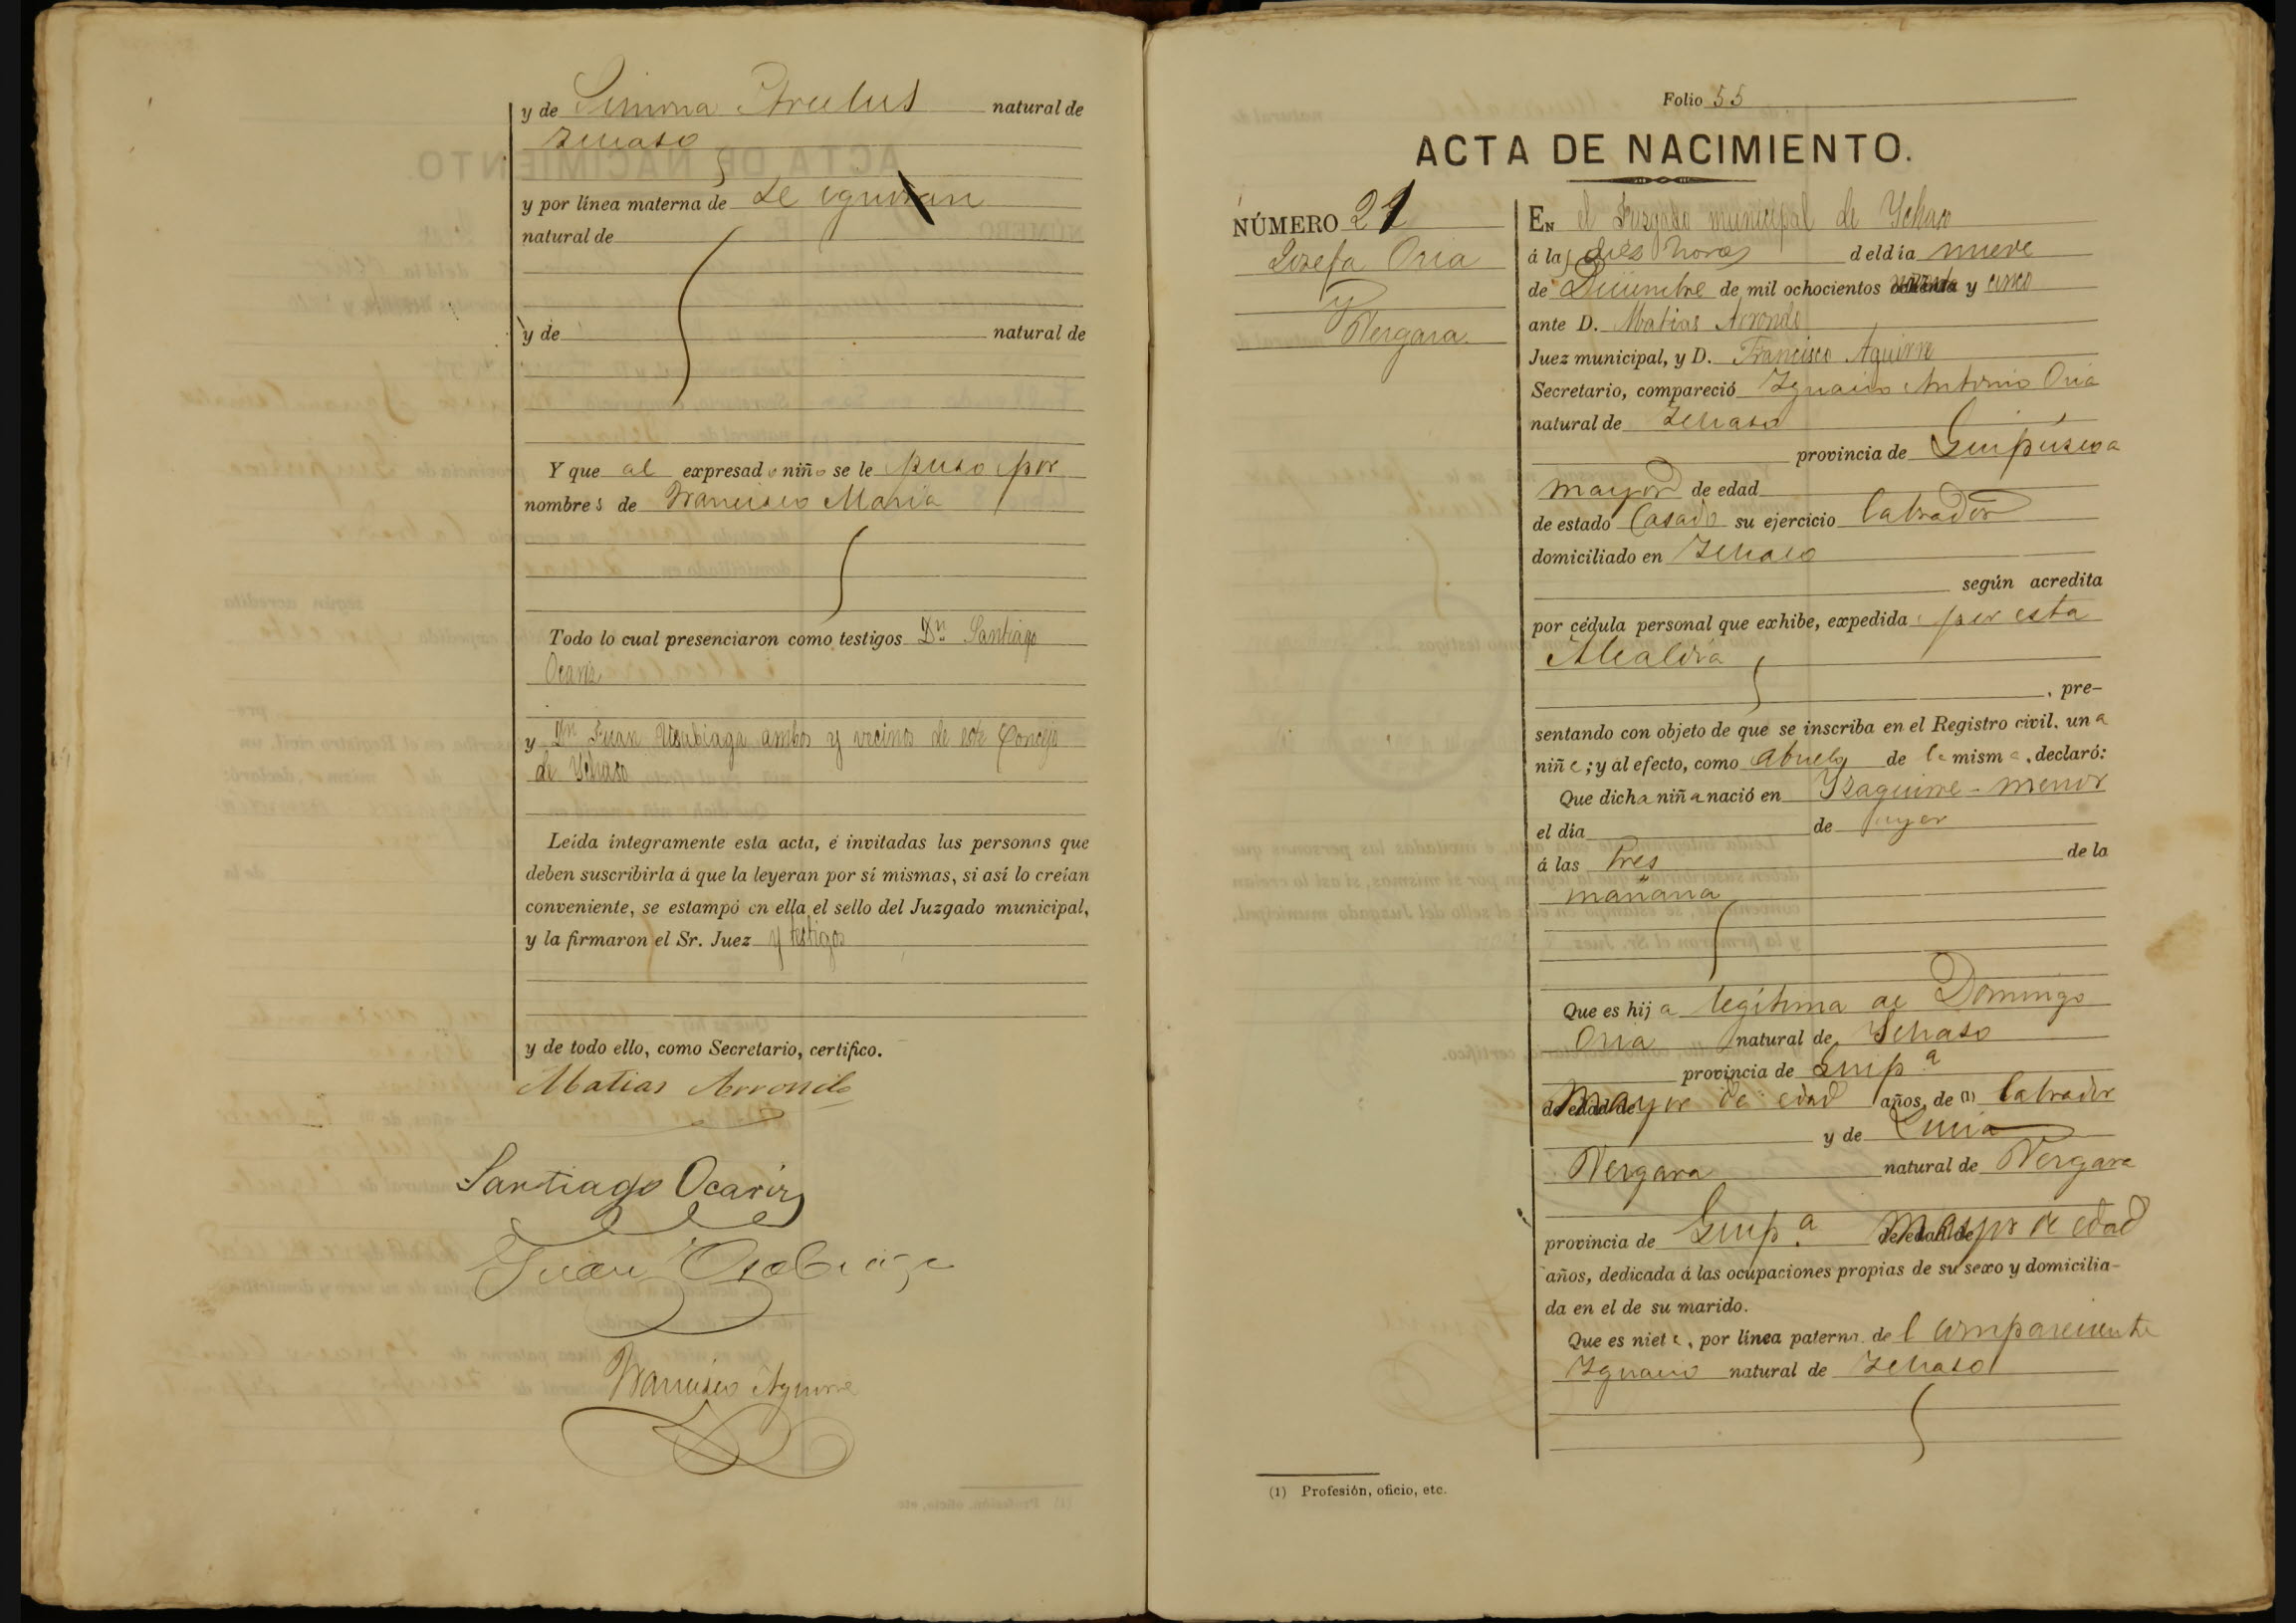 y de Simona Aracelus natural de
Ichaso
y por línea materna de Se ignoran
natural de
y de natural de
Y que al expresado niño se le puso por
nombres de Francisco Maria
Todo lo cual presenciaron como testigos Dn Santiago
Ocariz
y Dn Juan Usabiaga ambos y vecinos de este Concejo
de Ychaso
Leída íntegramente esta acta, é invitadas las personas que
deben suscribirla á que la leyeran por sí mismas, si así lo creían
conveniente, se estampó en ella el sello del Juzgado municipal,
y la firmaron el Sr. Juez y testigos
y de todo ello, como Secretario, certifico.
Matias Arrondo
Santiago Ocariz
Juan Usabiaga
Francisco Aguirre
Folio 55
ACTA DE NACIMIENTO.
NÚMERO 21
Josefa Oria
y
Vergara
EN el Juzgado municipal de Ychaso
á las diés horas del día nueve
de Diciembre de mil ochocientos noventa y cinco
ante D. Matias Arrondo
Juez municipal, y D. Francisco Aguirre
Secretario, compareció Ignacio Antonio Oria
natural de Ichaso
provincia de Guipúscoa
mayor de edad
de estado Casado su ejercicio labrador
domiciliado en Ichaso
según acredita
por cédula personal que exhibe, expedida por esta
Alcaldia
, pre-
sentando con objeto de que se inscriba en el Registro civil, una
niña; y al efecto, como abuelo de la misma, declaró:
Que dicha niña nació en Ysaguirre-menor
el día de ayer
á las tres de la
mañana
Que es hija legítima de Domingo
Oria natural de Ichaso
provincia de Guip.a
de edad de mayor de edad años, de (1) labrador
y de Lucia
Vergara natural de Vergara
provincia de Guip.a de edad de mayor de edad
años, dedicada á las ocupaciones propias de su sexo y domicilia-
da en el de su marido.
Que es nieta, por línea paterna de l compareciente
Ignacio natural de Ichaso
(1) Profesión, oficio, etc.